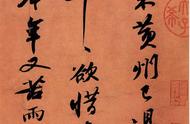 來黃州已過
年〻欲惜
年又苦雨